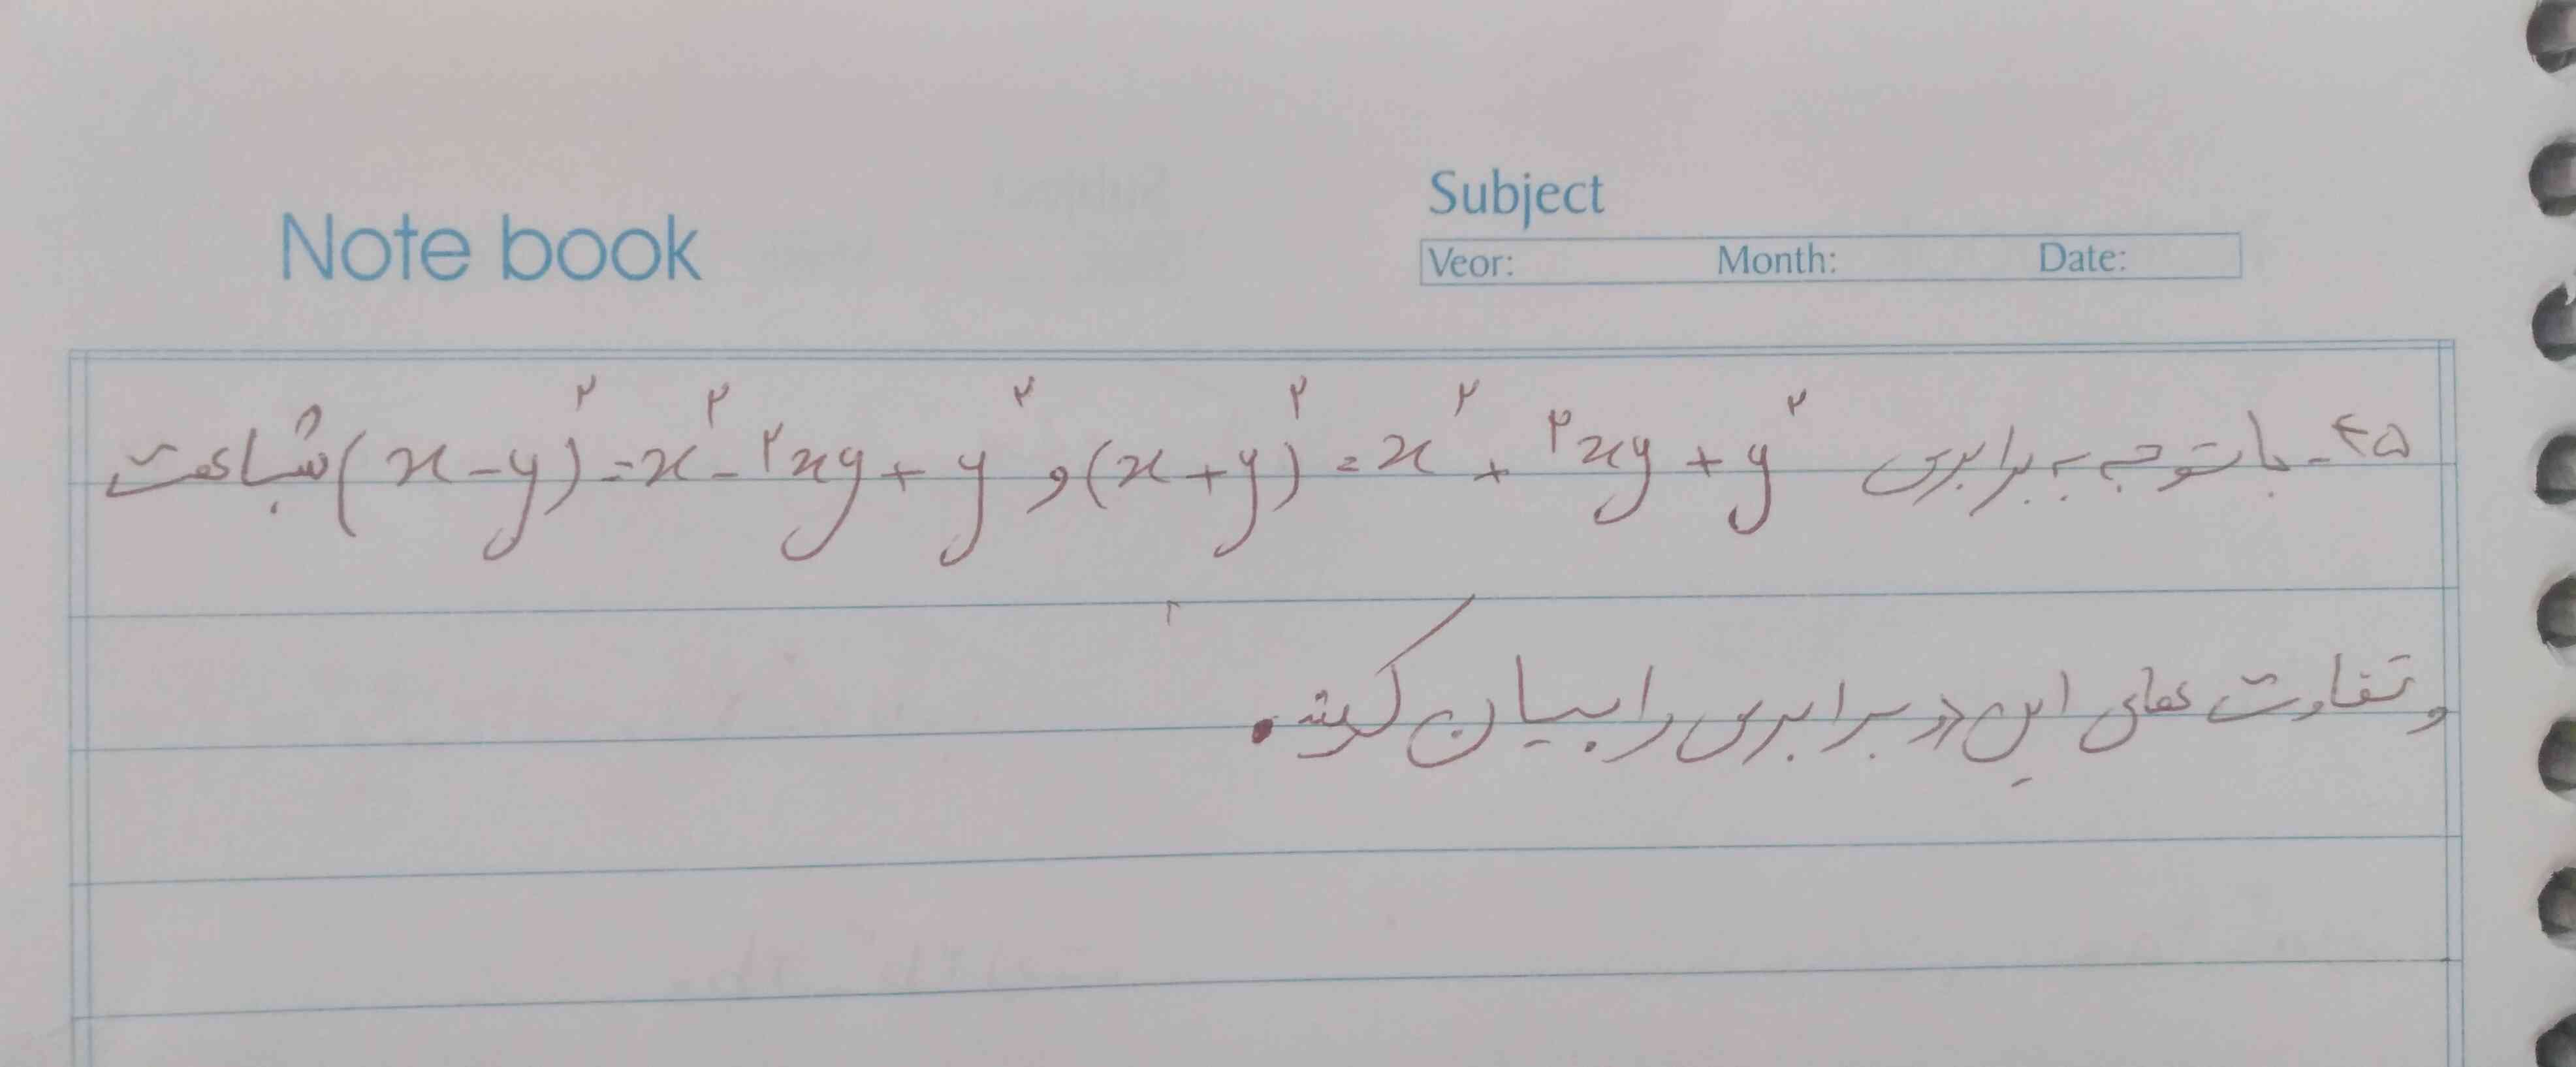 Note book
Subject
Veor: Month: Date:
۴۵- با توجه به برابری (x+y)^۲ = x^۲ + ۲xy + y^۲ و (x-y)^۲ = x^۲ - ۲xy + y^۲ شباهت
و تفاوت های این دو برابری را بیان کنید.